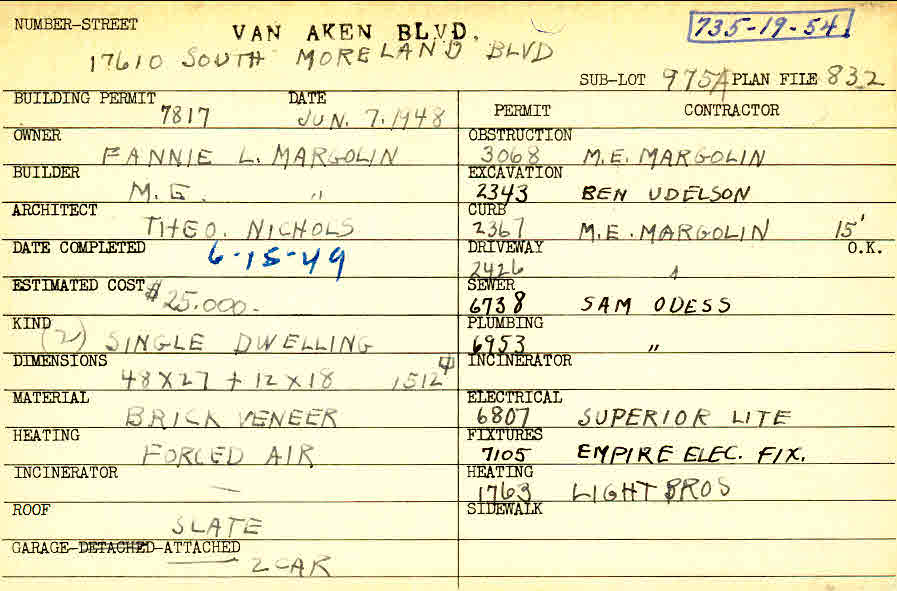 NUMBER-STREET
VAN AKEN BLVD.
735-19-54
17610 SOUTH MORELAND BLVD
SUB-LOT 975A PLAN FILE 832
BUILDING PERMIT DATE
7817 JUN. 7. 1948
PERMIT CONTRACTOR
OWNER
FANNIE L. MARGOLIN
OBSTRUCTION
3068 M.E. MARGOLIN
BUILDER
M. E. "
EXCAVATION
2343 BEN UDELSON
ARCHITECT
THEO. NICHOLS
CURB
2367 M.E. MARGOLIN 15'
DATE COMPLETED
6-15-49
DRIVEWAY O.K.
2426 "
ESTIMATED COST
$25.000.-
SEWER
6738 SAM ODESS
KIND
(2) SINGLE DWELLING
PLUMBING
6953 "
DIMENSIONS
48 X 27 + 12 X 18 1512
INCINERATOR
MATERIAL
BRICK VENEER
ELECTRICAL
6807 SUPERIOR LITE
HEATING
FORCED AIR
FIXTURES
7105 EMPIRE ELEC. FIX.
INCINERATOR
—
HEATING
1763 LIGHT BROS
ROOF
SLATE
SIDEWALK
GARAGE-DETACHED-ATTACHED
2 CAR